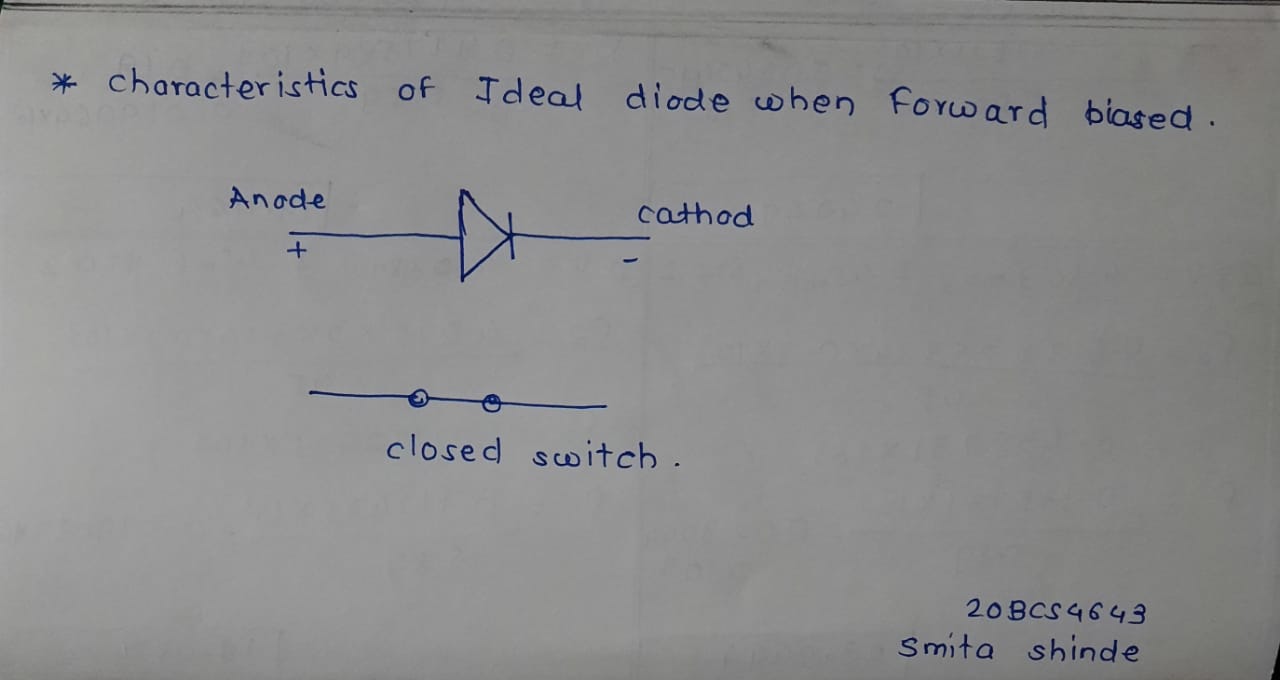 * Characteristics of Ideal diode when Forward biased.
Anode
cathod
+
-
closed switch.
20BCS4643
Smita shinde